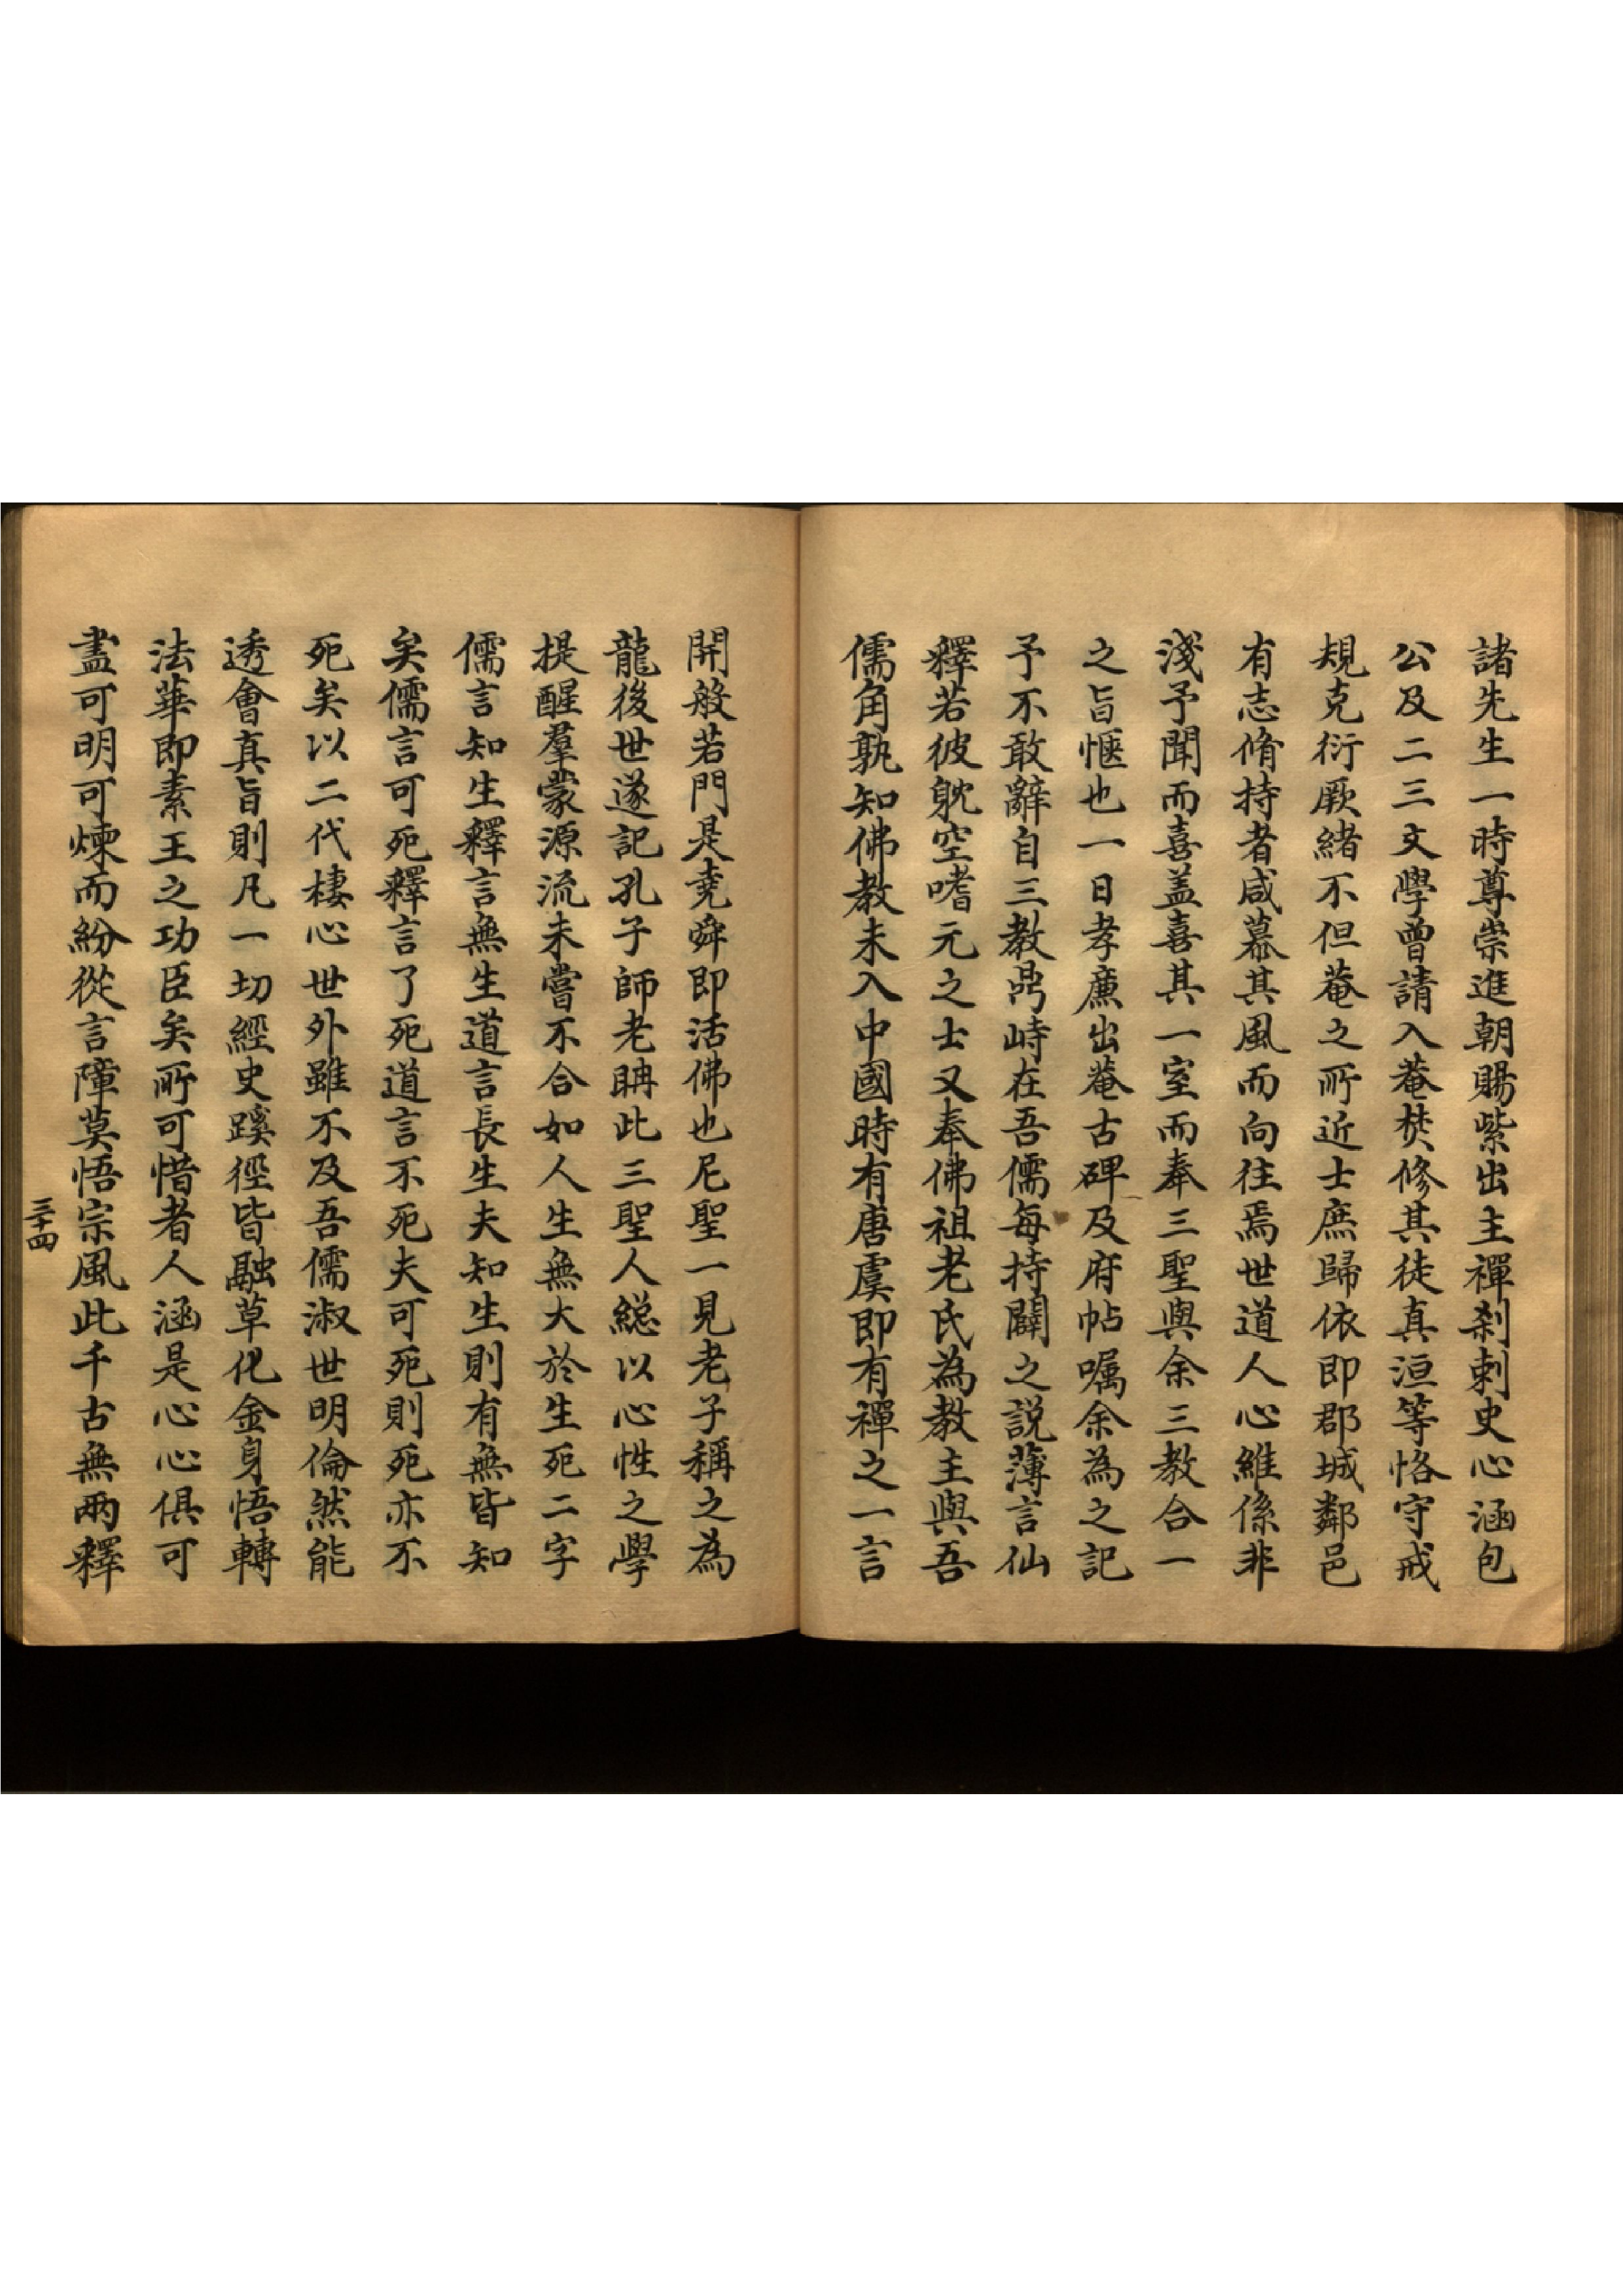 諸先生一時尊崇進朝賜紫出主禪剎剌史心涵包
公及二三文學曾請入菴焚修其徒真洹等恪守戒
規克衍厥緒不但菴之所近士庶歸依即郡城鄰邑
有志脩持者咸慕其風而向往焉世道人心維係非
淺予聞而喜盖喜其一室而奉三聖與余三教合一
之旨愜也一日孝廉出菴古碑及府帖嘱余為之記
予不敢辭自三教鼎峙在吾儒每持闢之説薄言仙
釋若彼躭空嗜元之士又奉佛祖老氏為教主與吾
儒角孰知佛教未入中國時有唐虞即有禪之一言
開般若門是堯舜即活佛也尼聖一見老子稱之為
龍後世遂記孔子師老聃此三聖人緫以心性之學
提醒羣蒙源流未嘗不合如人生無大於生死二字
儒言知生釋言無生道言長生夫知生則有無皆知
矣儒言可死釋言了死道言不死夫可死則死亦不
死矣以二代棲心世外雖不及吾儒淑世明倫然能
透會真旨則凡一切經史蹊徑皆融草化金身悟轉
法華即素王之功臣矣所可惜者人涵是心心俱可
盡可明可煉而紛從言障莫悟宗風此千古無兩釋
三十四